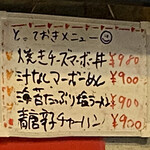 とっておきメニュー
焼きチーズマーボー丼 ¥980
汁なしマーボーめん ¥900
海苔たっぷり塩ラーメン ¥900
青唐辛子チャーハン ¥900